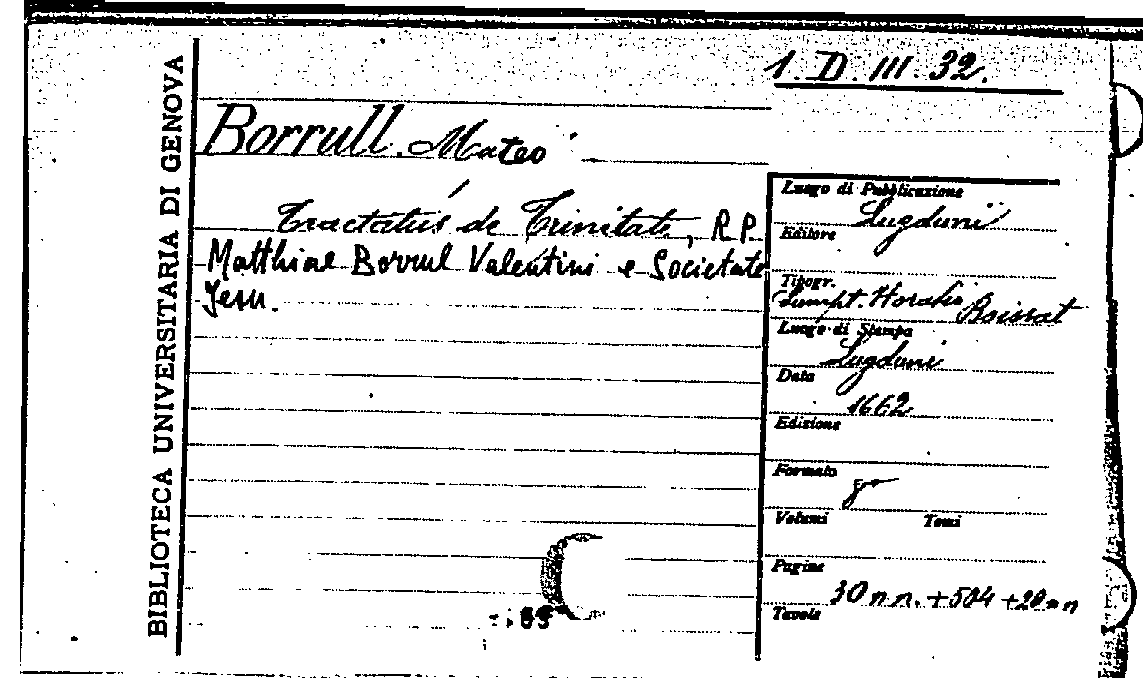 1. D. III. 32.
BIBLIOTECA UNIVERSITARIA DI GENOVA
Borrull. Mateo
Tractatus de Trinitate, R.P.
Matthiae Borrul Valentini e Societate
Jesu.
Luogo di Pubblicazione
Lugduni
Editore
Tipogr.
Sumpt. Horatii Boissat
Luogo di Stampa
Lugduni
Data
1662
Edizione
Formato
8º
Volumi Tomi
Pagine
30 n n. + 504 + 20 n n
Tavole